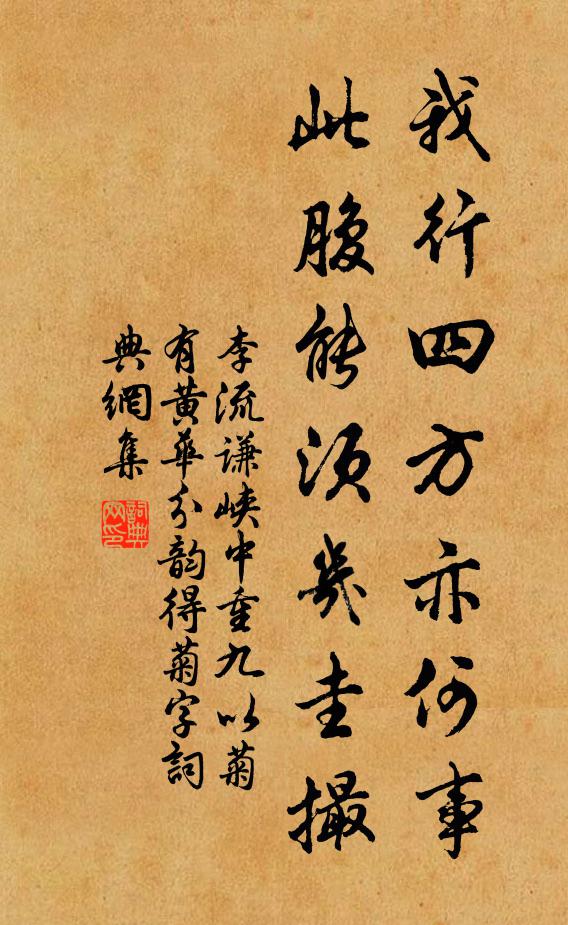 我行四方亦何事
此腹能須幾圭撮
李流謙峽中重九以菊
有黃華分韵得菊字詞
典網集
詞典
网印